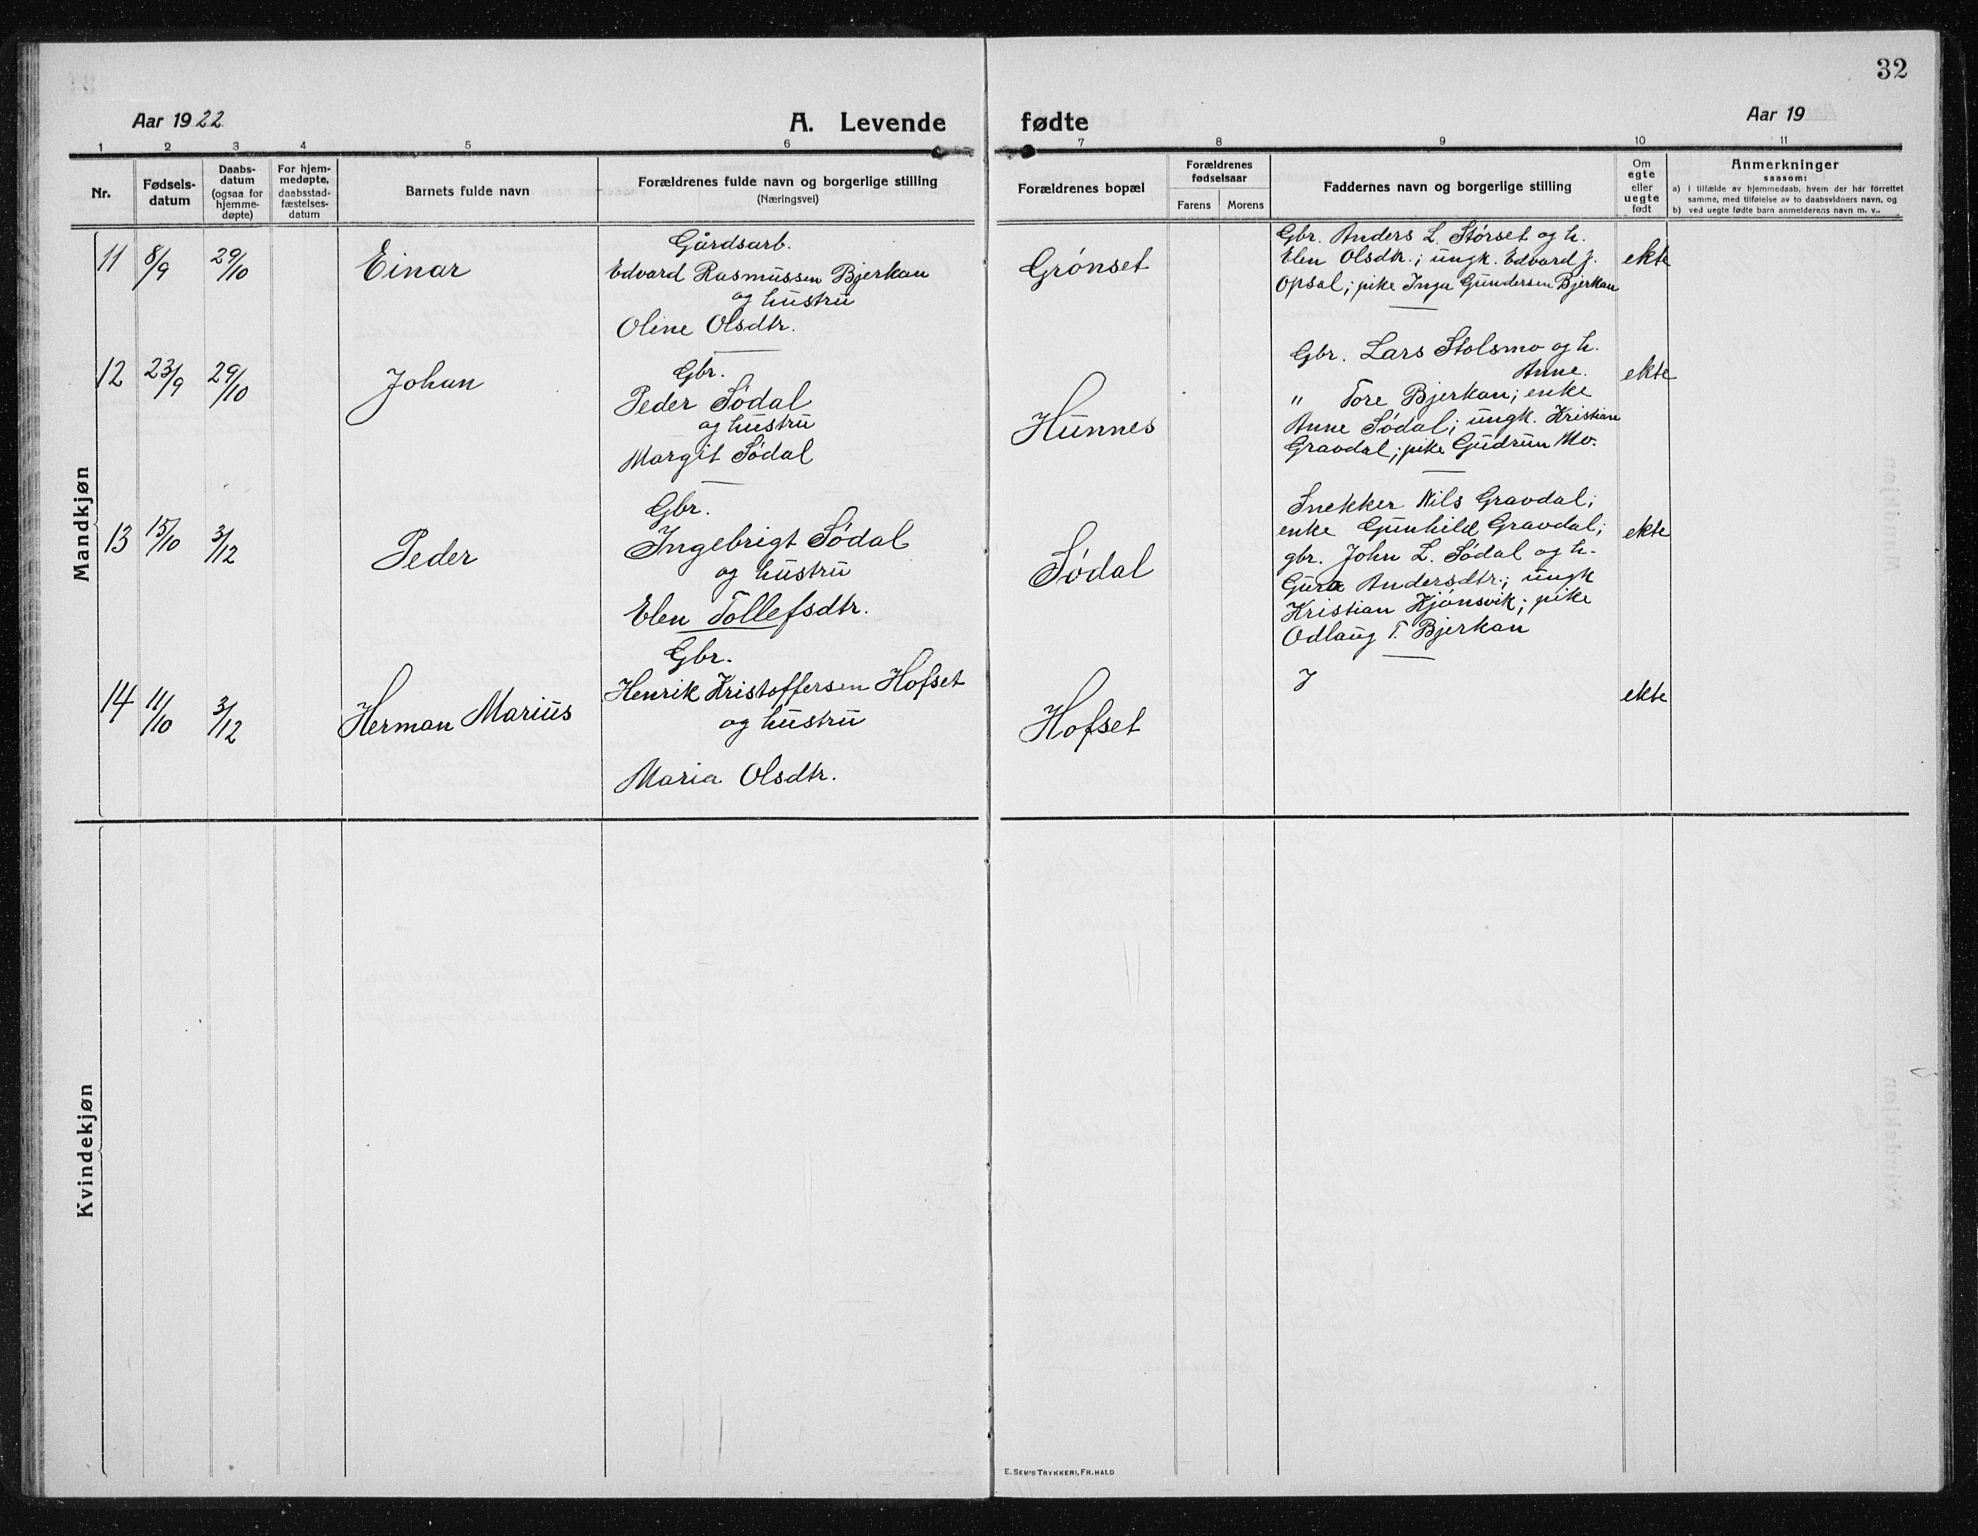 32
Aar 1922
A. Levende fødte
Aar 19
1 2 3 4 5 6 7 8 9 10 11
Nr.
Fødsels-
datum
Daabs-
datum
(ogsaa for
hjemme-
døpte)
For hjem-
medøpte,
daabsstad-
fæstelses-
datum
Barnets fulde navn
Forældrenes fulde navn og borgerlige stilling
(Næringsvei)
Forældrenes bopæl
Forældrenes
fødselsaar
Farens Morens
Faddernes navn og borgerlige stilling
Om
egte
eller
uegte
født
Anmerkninger
saasom:
a) i tilfælde av hjemmedaab, hvem der har forrettet
samme, med tilføielse av to daabsvidners navn, og
b) ved uegte fødte barn anmelderens navn m. v..
Mandkjøn
11 8/9 29/10 Einar
Gårdsarb.
Edvard Rasmussen Bjerkan
og hustru
Oline Olsdtr.
Grønset
Gbr. Anders L. Størset og h.
Elen Olsdtr.; ungk. Edvard J.
Opsal; pike Inga Gundersen Bjerkan
ekte
12 23/9 29/10 Johan
Gbr.
Peder Södal
og hustru
Margit Södal
Hunnes
Gbr. Lars Stolsmo og h.
Anne.
" Tore Bjerkan; enke
Anne Södal; ungk. Kristian
Gravdal; pike Gudrun Mo.
ekte
13 15/10 3/12 Peder
Gbr.
Ingebrigt Södal
og hustru
Elen Tollefsdtr.
Södal
Snekker Nils Gravdal;
enke Gunhild Gravdal;
gbr. John L. Södal og h.
Gura Andersdtr.; ungk
Kristian Hjønsvik; pike
Odlaug T. Bjerkan
ekte
14 11/10 3/12 Herman Marius
Gbr.
Henrik Kristoffersen Hofset
og hustru
Maria Olsdtr.
Hofset
ekte
Kvindekjøn
E. Sem's Trykkeri, Fr.hald